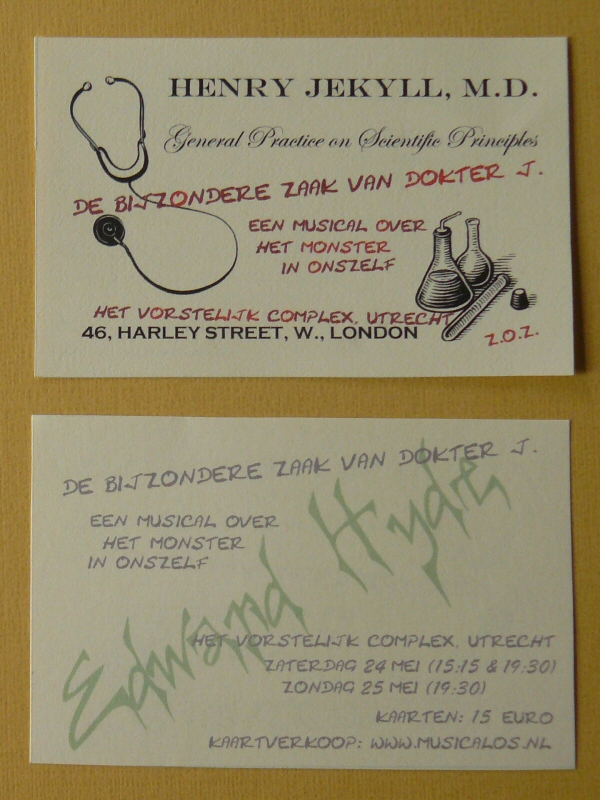 HENRY JEKYLL, M.D.
General Practice on Scientific Principles
DE BIJZONDERE ZAAK VAN DOKTER J.
EEN MUSICAL OVER
HET MONSTER
IN ONSZELF
HET VORSTELIJK COMPLEX, UTRECHT
46, HARLEY STREET, W., LONDON
Z.O.Z.
DE BIJZONDERE ZAAK VAN DOKTER J.
EEN MUSICAL OVER
HET MONSTER
IN ONSZELF
Edward Hyde
HET VORSTELIJK COMPLEX, UTRECHT
ZATERDAG 24 MEI (15:15 & 19:30)
ZONDAG 25 MEI (19:30)
KAARTEN: 15 EURO
KAARTVERKOOP: WWW.MUSICALOS.NL